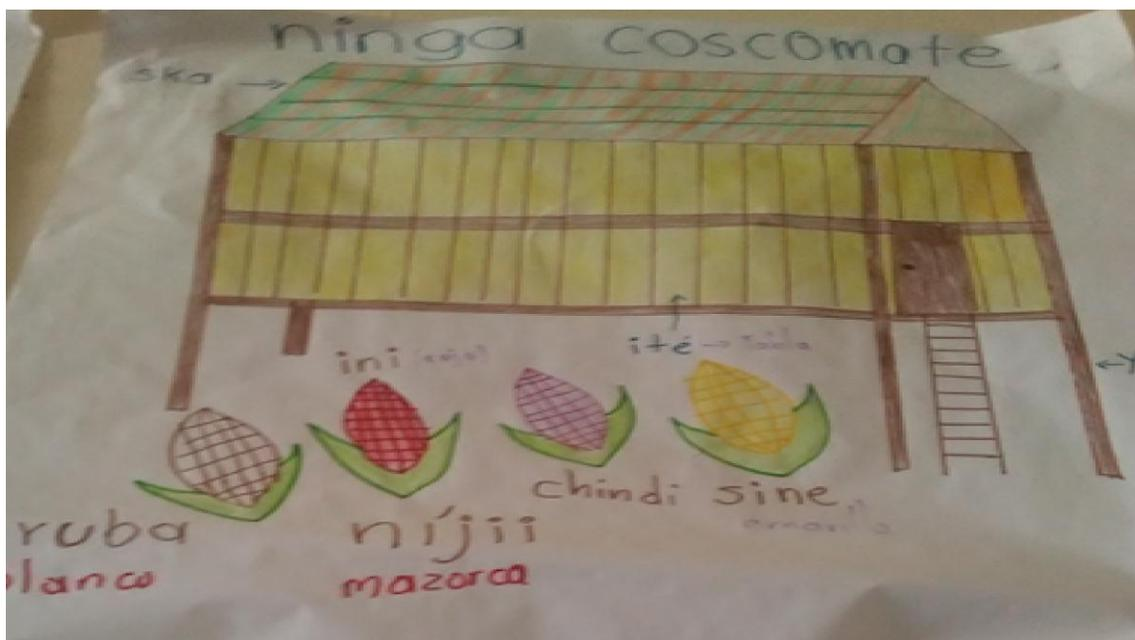 ninga coscomate
ska
ité → Tabla
ini (rojo)
chindi sine
amarillo
ruba níjii
lanco mazorca